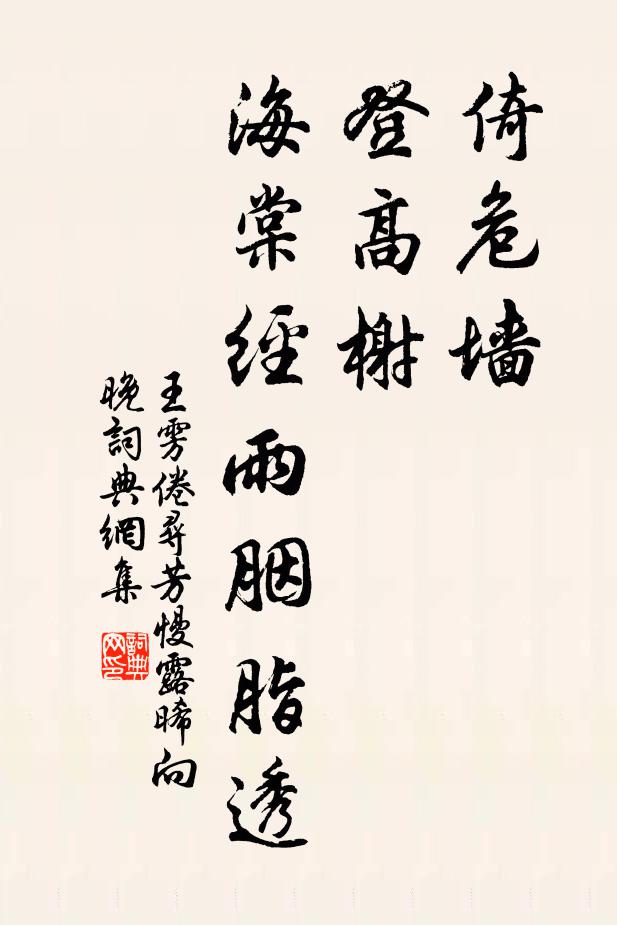 倚危墙
登高榭
海棠經雨胭脂透
王雱倦尋芳慢露晞向
晚詞典網集
詞典
网印